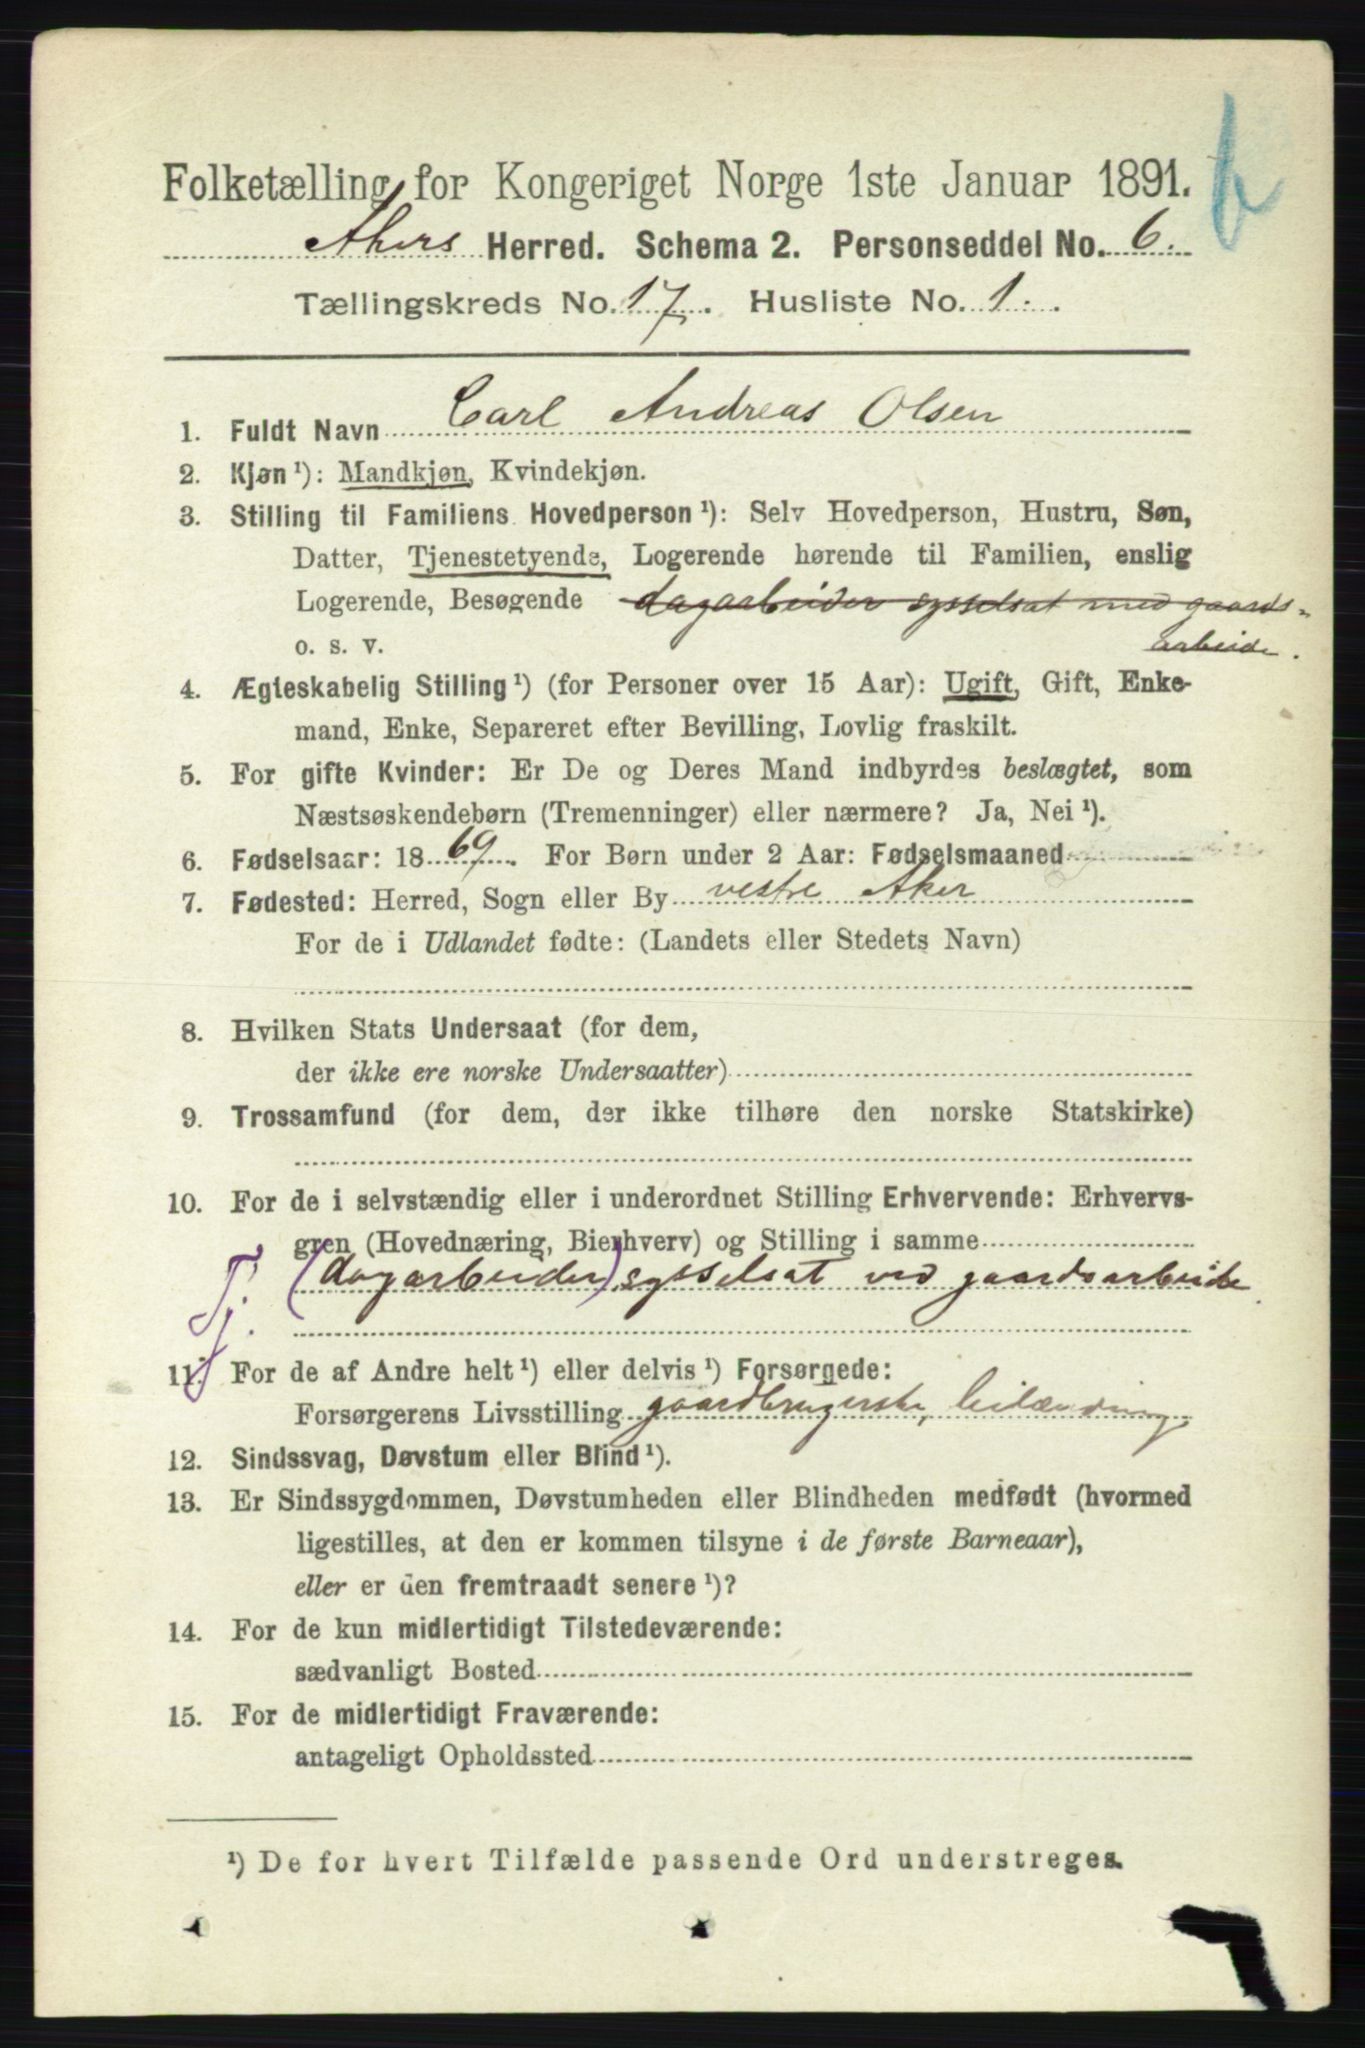 b
Folketælling for Kongeriget Norge 1ste Januar 1891.
Akers Herred. Schema 2. Personseddel No. 6.
Tællingskreds No. 17. Husliste No. 1.
1. Fuldt Navn Carl Andreas Olsen
2. Kjøn ¹): Mandkjøn, Kvindekjøn.
3. Stilling til Familiens Hovedperson ¹): Selv Hovedperson, Hustru, Søn,
Datter, Tjenestetyende, Logerende hørende til Familien, enslig
Logerende, Besøgende dagarbeider sysselsat med gaards-
o. s. v. arbeide.
4. Ægteskabelig Stilling ¹) (for Personer over 15 Aar): Ugift, Gift, Enke-
mand, Enke, Separeret efter Bevilling, Lovlig fraskilt.
5. For gifte Kvinder: Er De og Deres Mand indbyrdes beslægtet, som
Næstsøskendebørn (Tremenninger) eller nærmere? Ja, Nei ¹).
6. Fødselsaar: 1869. For Børn under 2 Aar: Fødselsmaaned
7. Fødested: Herred, Sogn eller By vestre Aker
For de i Udlandet fødte: (Landets eller Stedets Navn)
8. Hvilken Stats Undersaat (for dem,
der ikke ere norske Undersaatter)
9. Trossamfund (for dem, der ikke tilhøre den norske Statskirke)
10. For de i selvstændig eller i underordnet Stilling Erhvervende: Erhvervs-
gren (Hovednæring, Bierhverv) og Stilling i samme
Tj. (dagarbeider) sysselsat ved gaardsarbeide
11. For de af Andre helt ¹) eller delvis ¹) Forsørgede:
Forsørgerens Livsstilling gaardbrugerske,
12. Sindssvag, Døvstum eller Blind ¹).
13. Er Sindssygdommen, Døvstumheden eller Blindheden medfødt (hvormed
ligestilles, at den er kommen tilsyne i de første Barneaar),
eller er den fremtraadt senere ¹)?
14. For de kun midlertidigt Tilstedeværende:
sædvanligt Bosted
15. For de midlertidigt Fraværende:
antageligt Opholdssted
¹) De for hvert Tilfælde passende Ord understreges.